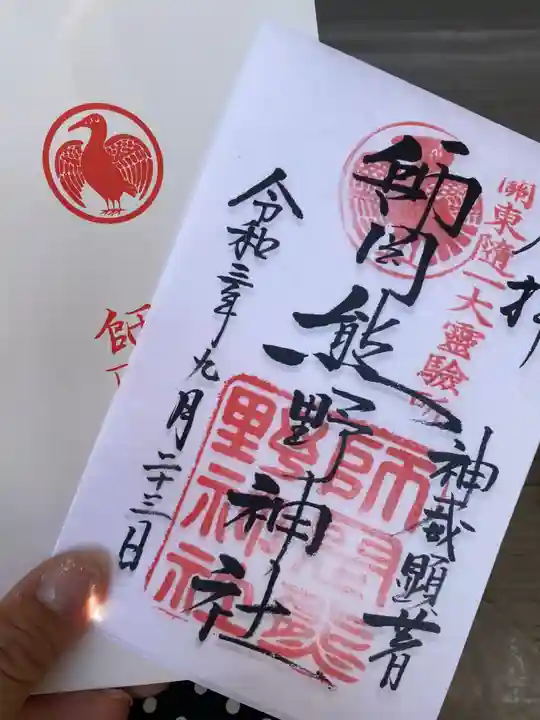 奉拝
關東随一大霊驗所
神威顕著
師岡熊野神社
師岡熊野神社
令和三年九月二十三日
師